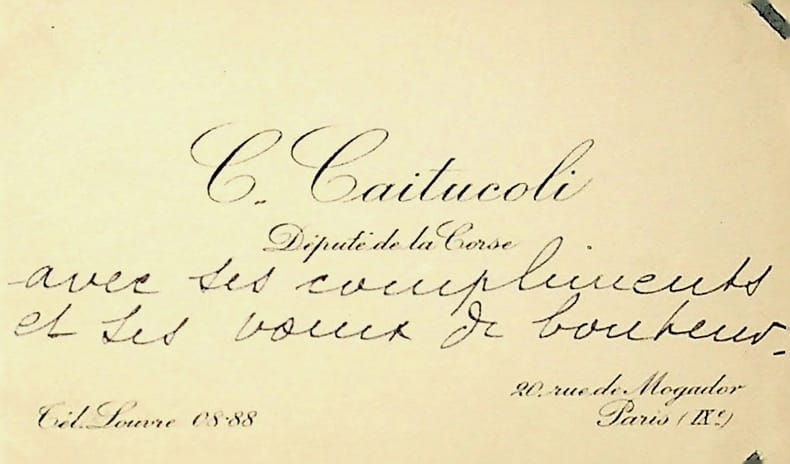 C. Caitucoli
Député de la Corse
avec ses compliments
et ses vœux de bonheur.
20. rue de Mogador
Tél. Louvre 08-88
Paris (IXe)